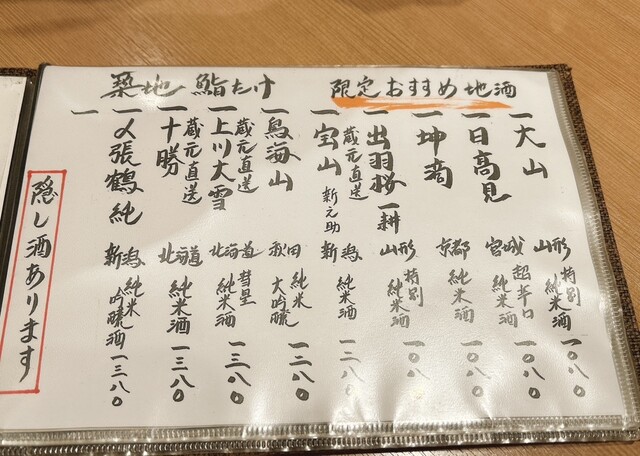 築地 鮨たけ
限定おすすめ地酒
一大山 山形 特別純米酒 一〇八〇
一日高見 宮城 超辛口純米酒 一〇八〇
一坤滴 京都 純米酒 一〇八〇
一出羽桜 一耕 山形 特別純米酒 一〇八〇
蔵元直送
一宝山 新之助 新潟 純米酒 一二八〇
一鳥海山 秋田 純米大吟醸 一二八〇
蔵元直送
一上川大雪 北海道 彗星純米酒 一三八〇
蔵元直送
一十勝 北海道 純米酒 一三八〇
一〆張鶴 純 新潟 純米吟醸酒 一三八〇
一
隠し酒あります